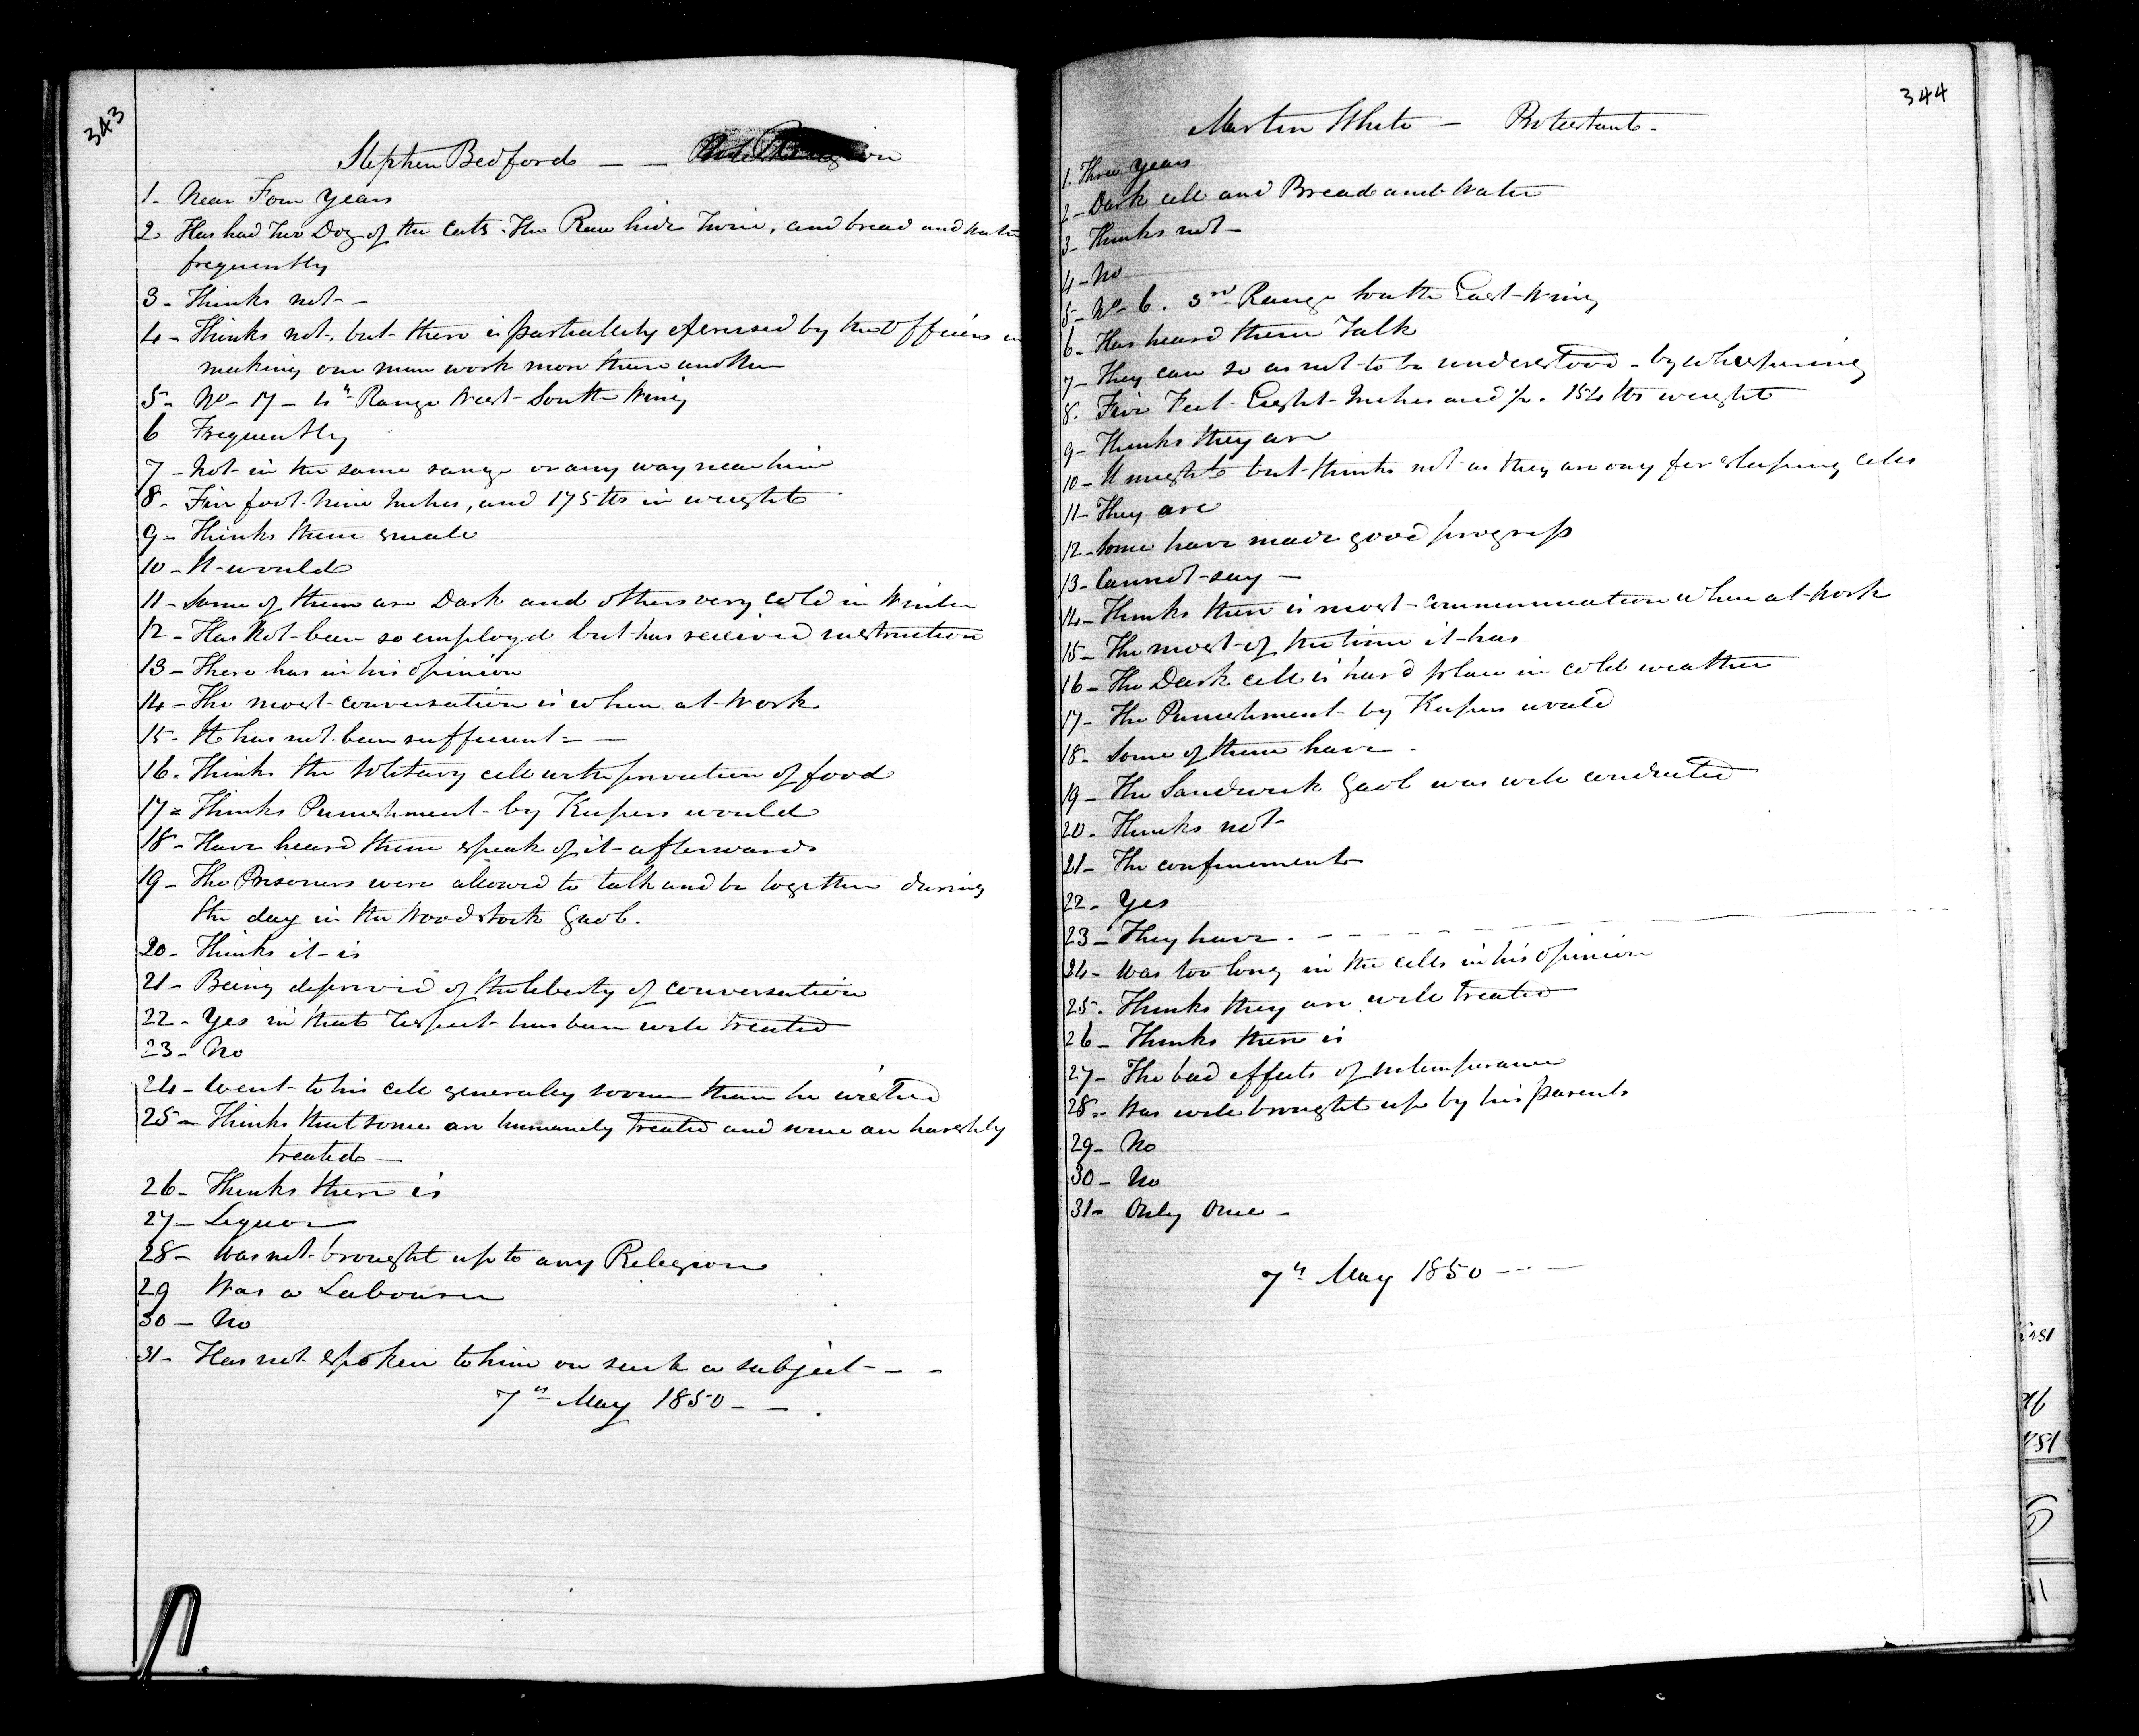 343
Stephen Bedford — —
1 - Near Four Years
2 Has had Two Doz of the Cats. The Raw hide Twice, and bread and water
frequently
3 - Thinks not - -
4 - Thinks not, but there is partiallity exercised by the Officers in
making one man work more than another
5 - No - 17 - 4th Range West South Wing
6 Frequently
7 - Not in the same range or any way near him
8 - Five foot Nine Inches, and 175 lbs in weight
9 - Thinks them small
10 - It would
11 - Some of them are Dark and others very Cold in Winter
12 - Has Not been so employed but has received instruction
13 - There has in his Opinion
14 - The most conversation is when at Work
15 - It has not been sufficient = —
16 - Thinks the Solitary cell with privation of food
17 = Thinks Punishment by Keepers would
18 - Have heard them speak of it afterwards
19 - The Prisoners were allowed to talk and be together during
the day in the Woodstock Gaol.
20 - Thinks it is
21 - Being deprived of the liberty of conversation
22 - Yes in that Respect has been well treated
23 - No
24 - Went to his cell generally sooner than he wished
25 - Thinks that some are humanely treated and some are harshly
treated —
26 - Thinks there is
27 - Liquor
28 - Was not brought up to any Religion
29 Was a Labourer
30 - No
31 - Has not spoken to him on such a subject - - -
7th May 1850 - - .
344
Martin White — Protestant -
1. Three Years
2 - Dark cell and Bread and Water
3 - Thinks not -
4 - No
5 - No - 6. 3rd Range South East Wing
6 - Has heard them Talk
7 - They can so as not to be understood - by whispering
8. Five Feet Eight Inches and ½. 154 lbs weight
9 - Thinks they are
10 - It might but thinks not as they are ony for sleeping Cells
11 - They are
12 - Some have made good progress
13 - Cannot say —
14 - Thinks there is most communication when at Work
15 - The most of the time it has
16 - The Dark cell is hard place in cold weather
17 - The Punishment by Keepers would
18 - Some of them have -
19 - The Sandwich Gaol was well conducted
20 - Thinks not -
21 - The confinement
22 - Yes
23 - They have - - - - -
24 - Was too long in the cells in his Opinion
25 - Thinks they are well treated
26 - Thinks there is
27 - The bad effects of intemperance
28 - Was well brought up by his parents
29 - No
30 - No
31 - Only Once -
7th May 1850 - - -